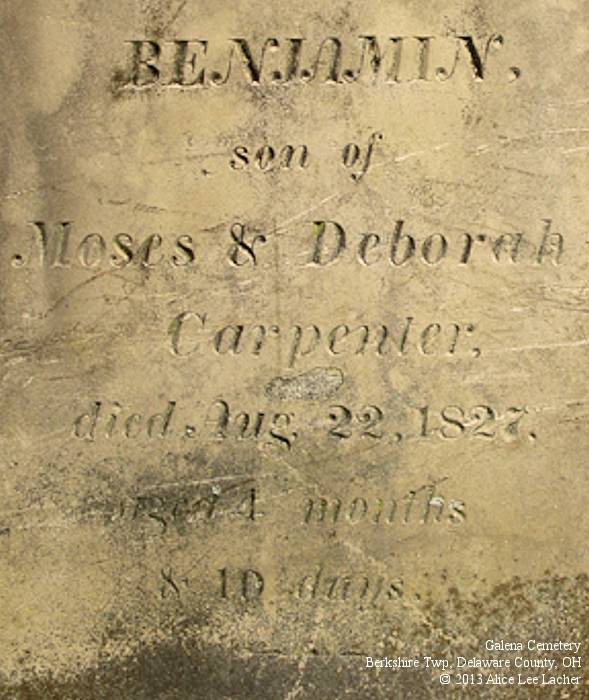 BENJAMIN,
son of
Moses & Deborah
Carpenter,
died Aug. 22, 1827,
aged 4 months
& 10 days.
Galena Cemetery
Berkshire Twp, Delaware County, OH
© 2013 Alice Lee Lacher